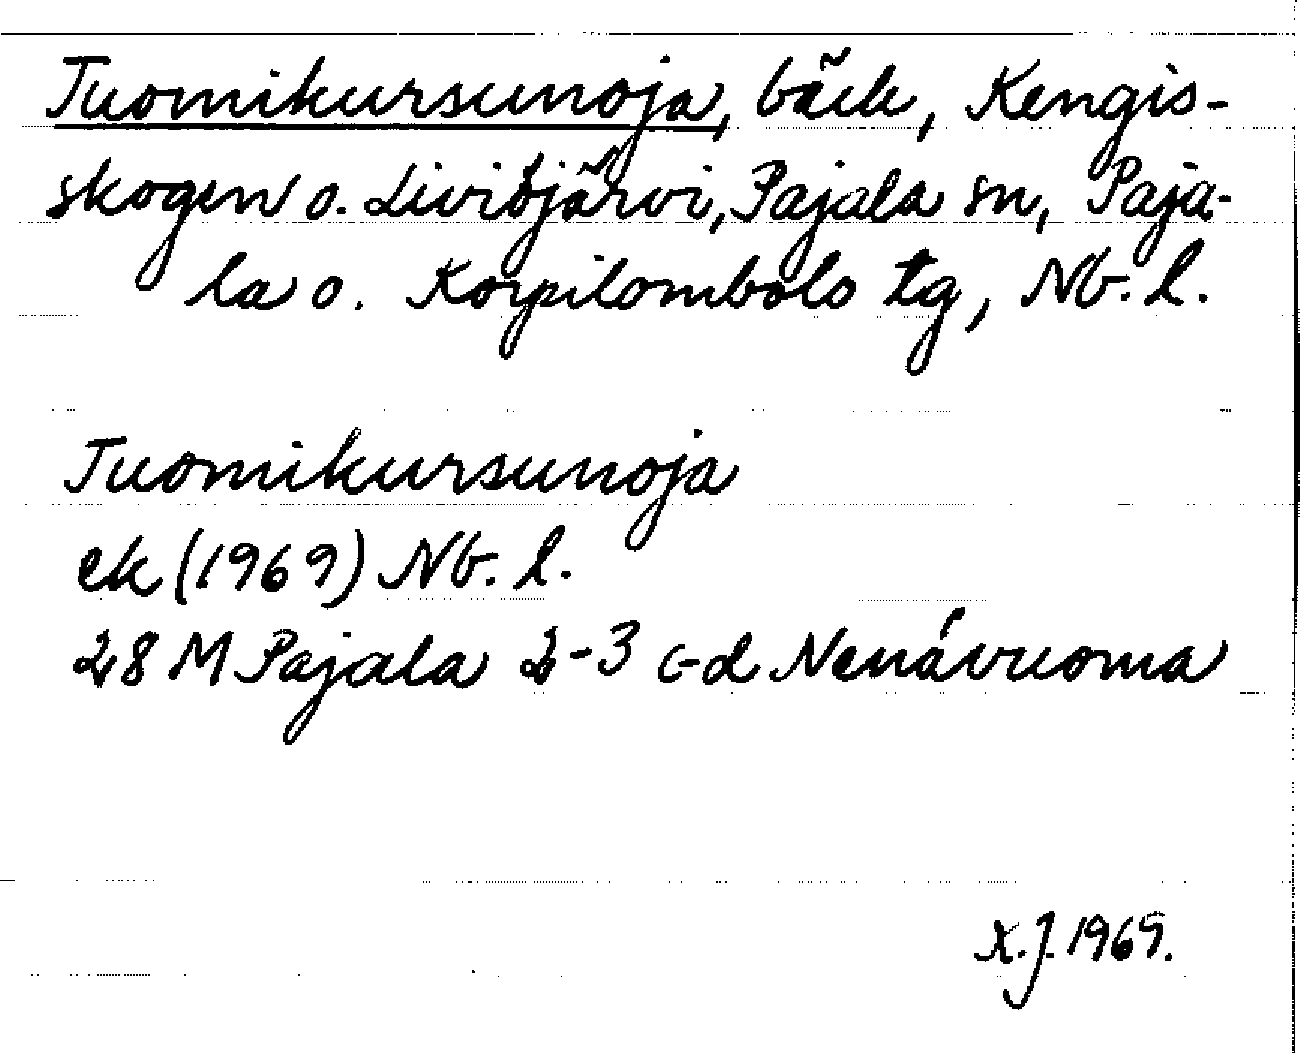 Tuomikursunoja, bäck, Kengis-
skogen o. Liviöjärvi, Pajala sn, Paja-
la o. Korpilombolo tg, Nb. l.
Tuomikursunoja
ek (1969) Nb. l.
28 M Pajala 2-3 c-d Nenävuoma
K.J. 1969.